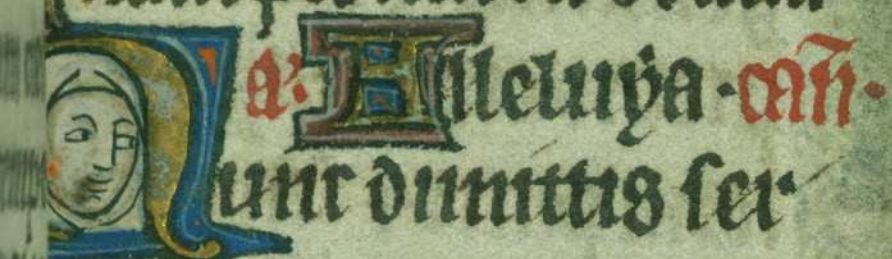 a. Alleluẏa. cañ.
Nunc dimittis ser